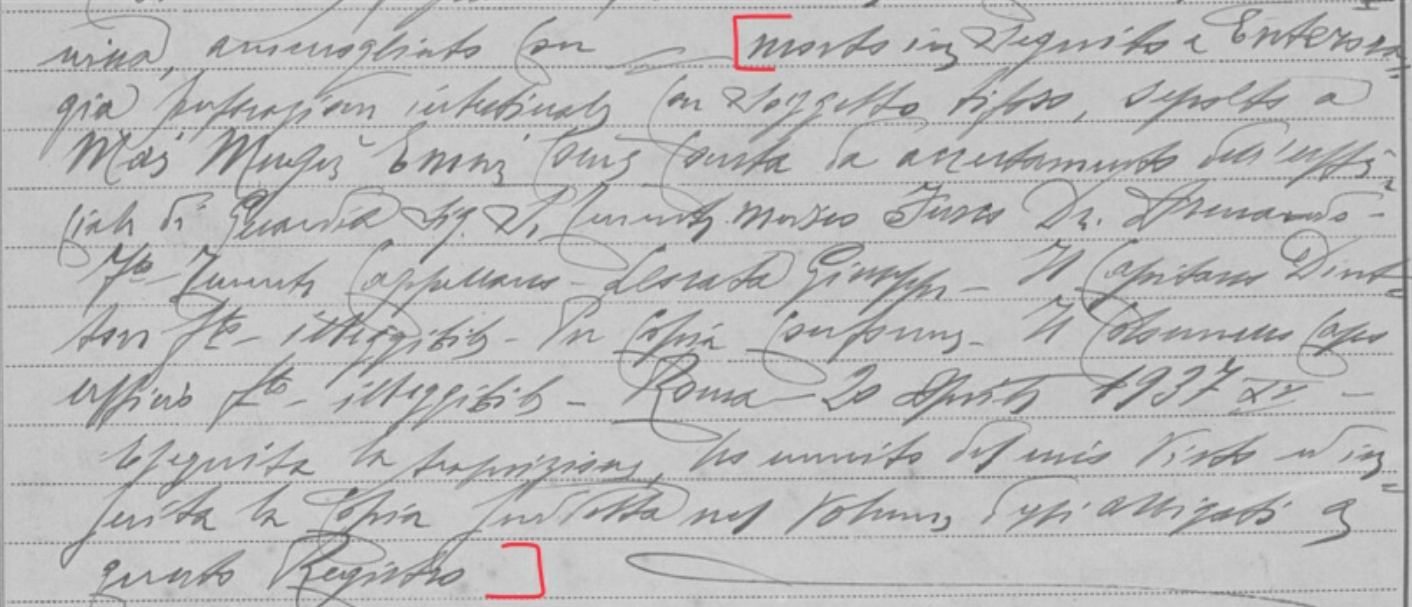 vina, ammogliato con morto in seguito a Enterora=
gia perforazion intestinale con soggetto tifoso, sepolto a
Mai Mugi Enni come consta da accertamento dell'uffi=
ciale di Guardia Sig. S. Tenente medico Fusco Dr. Armando -
Fto Tenente Cappellano - Giuseppe - Il Capitano Diret=
tore Fto - illeggibile - Per copia conforme - Il Colonnello Capo
ufficio fto - illeggibile - Roma 20 Aprile 1937 XV -
Eseguita la trascrizione, ho munito del mio Visto ed in=
serita la copia suddetta nel Volume degli allegati a
questo Registro